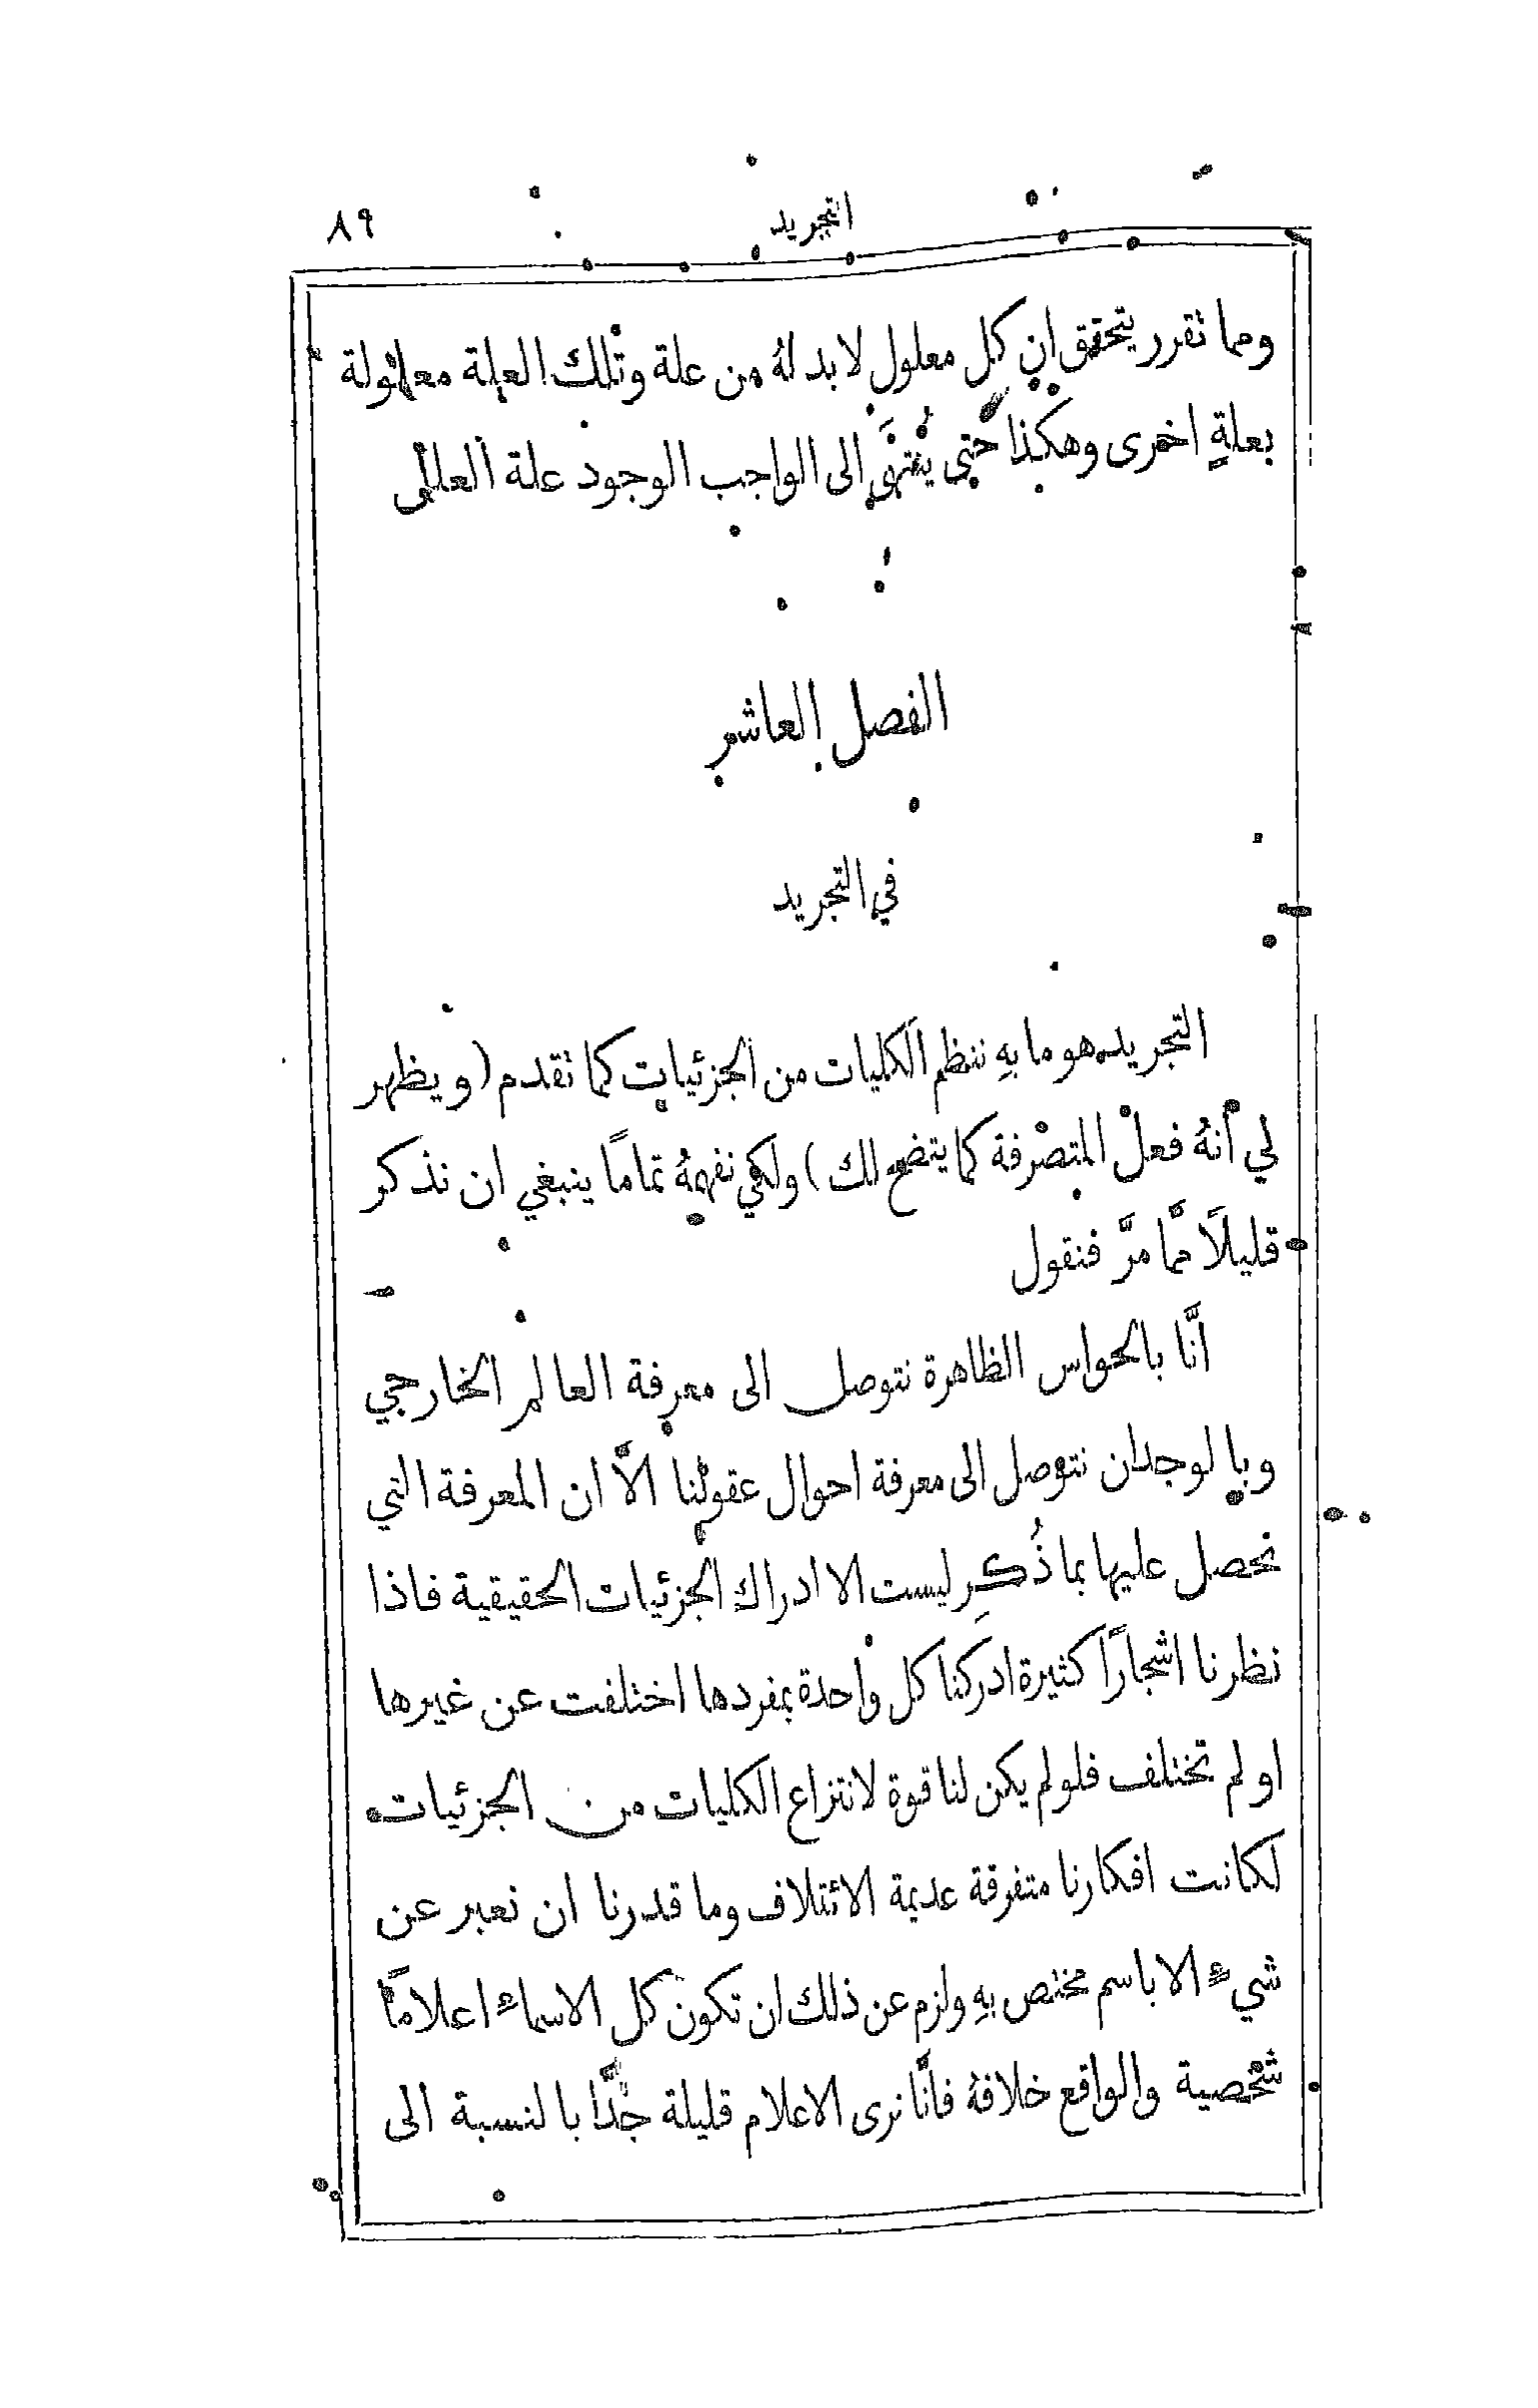 التجريد ٨٩
ومما تقرر يتحقق ان كل معلول لا بد لهُ من علة وتلك العلة معلولة
بعلةٍ اخرى وهكذا حتى يُنتهَى الى الواجب الوجود علة العلل
الفصل العاشر
في التجريد
التجريد هو ما بهِ ننظم الكليات من الجزئيات كما تقدم (ويظهر
لي أنهُ فعل المتصرفة كما يتضح لك) ولكي نفهمهُ تمامًا ينبغي ان نذكر
قليلًا ممَّا مرَّ فنقول
انَّا بالحواس الظاهرة نتوصل الى معرفة العالم الخارجي
وبالوجدان نتوصل الى معرفة احوال عقولنا الَّا ان المعرفة التي
نحصل عليها بما ذُكِر ليست الا ادراك الجزئيات الحقيقية فاذا
نظرنا اشجارًا كثيرة ادركنا كل واحدة بمفردها اختلفت عن غيرها
او لم تختلف فلو لم يكن لنا قوة لانتزاع الكليات من الجزئيات
لكانت افكارنا متفرقة عديمة الائتلاف وما قدرنا ان نعبر عن
شيءٍ الا باسم مختص بهِ ولزم عن ذلك ان تكون كل الاسماءِ اعلامًا
شخصية والواقع خلافهُ فانَّا نرى الاعلام قليلة جدًّا بالنسبة الى